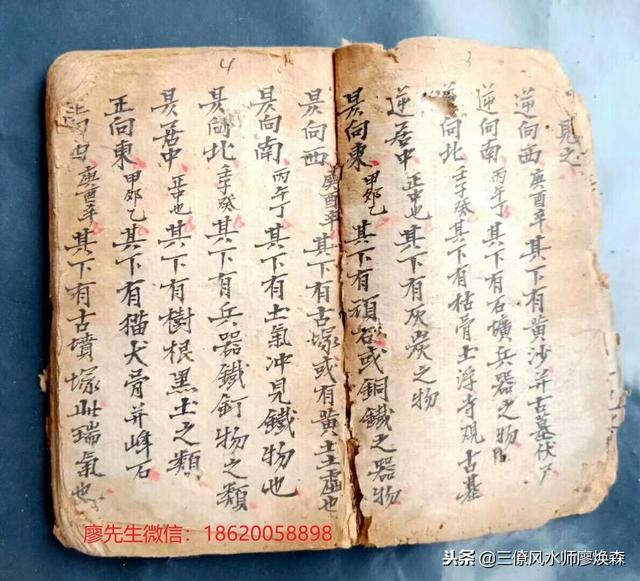 3
見之
逆向西庚酉辛其下有黃沙并古墓伏尸
逆向南丙午丁其下有石壙兵器之物
逆向北壬子癸其下有枯骨土浮寺觀古墓
逆居中正中也其下有灰炭之物
昃向東甲卯乙其下有頑石或銅鐵之器物
4
昃向西庚酉辛其下有古塚或有黃土
昃向南丙午丁其下有土氣冲見鐵物也
昃向北壬子癸其下有兵器鐵釘物之類
昃居中正中也其下有樹根黑土之類
正向東甲卯乙其下有猫犬骨并峰石
庚酉辛其下有古墳塚瑞氣也
廖先生微信：18620058898
头条@三僚风水师廖焕森